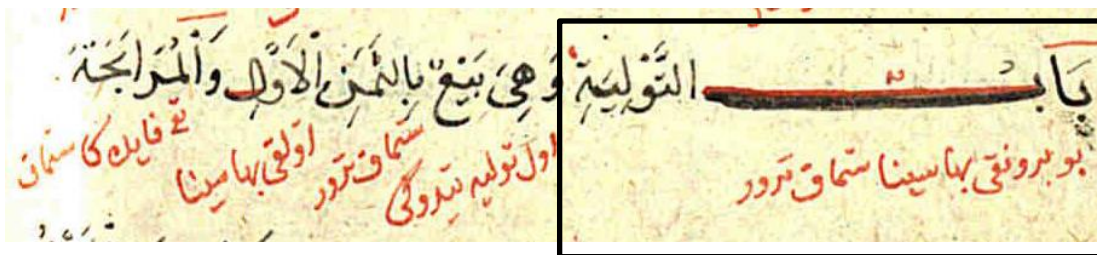 بَابُ التَّوْلِيَةِ وَهِيَ بَيْعٌ بِالثَّمَنِ الْاَوَّلِ وَالْمُرَابَحَةُ
بو برونقى بهاسينا ستماق ترور اول توليه تيدوكى ستماق ترور اولقى بهاسينا فايدكا ستماق